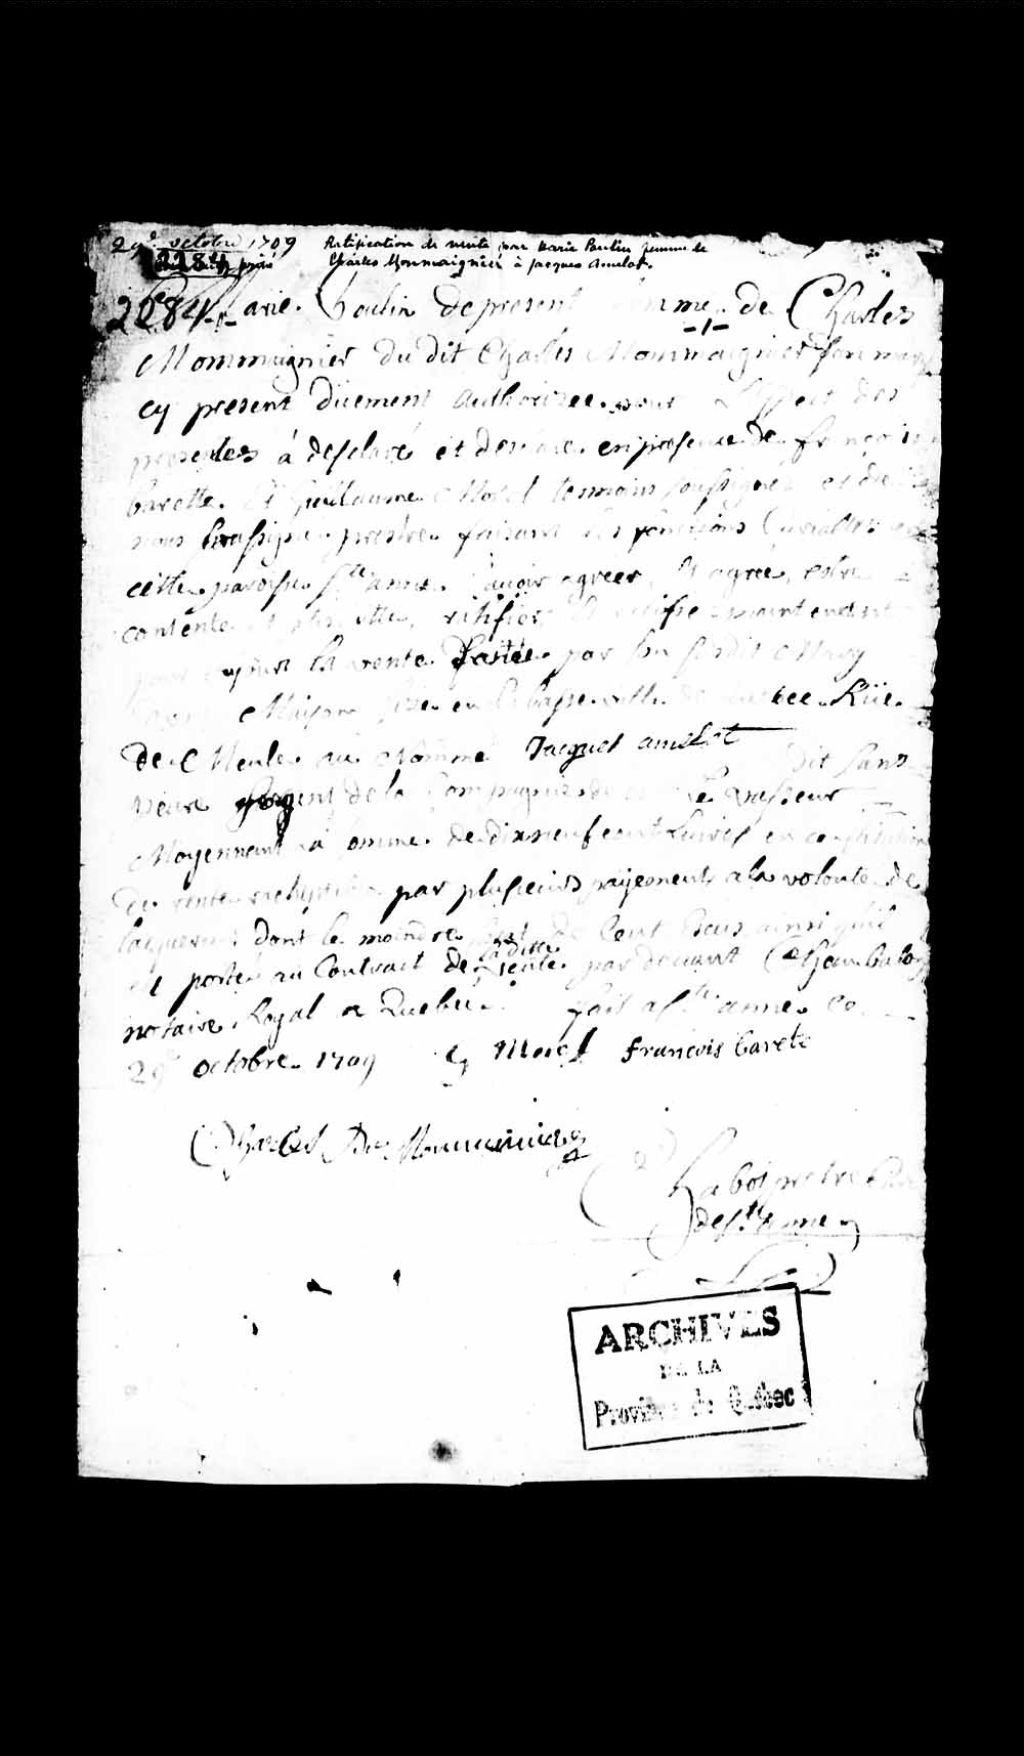 29e octobre 1709 Ratification de vente par Marie Poulin femme de
Charles Monmaignier à Jacques Amelot.
2284
Marie Poulin de present femme de Charles
Mommaignier du dit Charles Mommaignier son mary
cy present düement authorisee pour L'effect des
presentes á desclaré et desclare en presence de françois
barette Et Guillaume Morel temoins soussignez et de
nous soussigné prestre faisant les fonctions Curialles
cette paroisse Ste anne. Savoir agreer, Et agrée, estre
contente ratifier Et ratifie maintenant
pour toujours la vente faitte par son susdit Mary
Maison size en la basse ville de Quebec Rüe
De Meule au Nommé Jacques amelot dit sans
peur sergent de la Compagnie de Le vasseur
Moyennant la somme de dixneuf cent Livres en constitution
de rente par plusieurs payements a la volonte de
l'acquereur dont le moindre de Cent Escus ainsi quil
Et porté au Contract de la ditte Vente par devant
notaire Royal a Quebec. fait a Ste anne Ce
29e octobre 1709 G Morel francois barete
Charles
prestre
de Ste anne
ARCHIVES
DE LA
Province de Québec